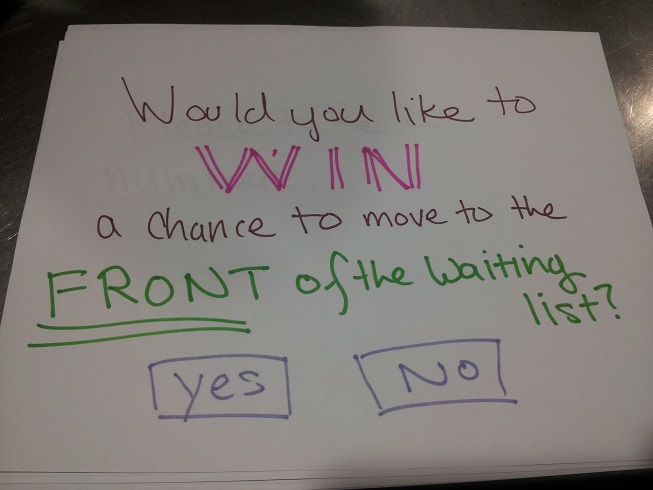 Would you like to
WIN
a chance to move to the
FRONT of the Waiting
list?
yes
NO